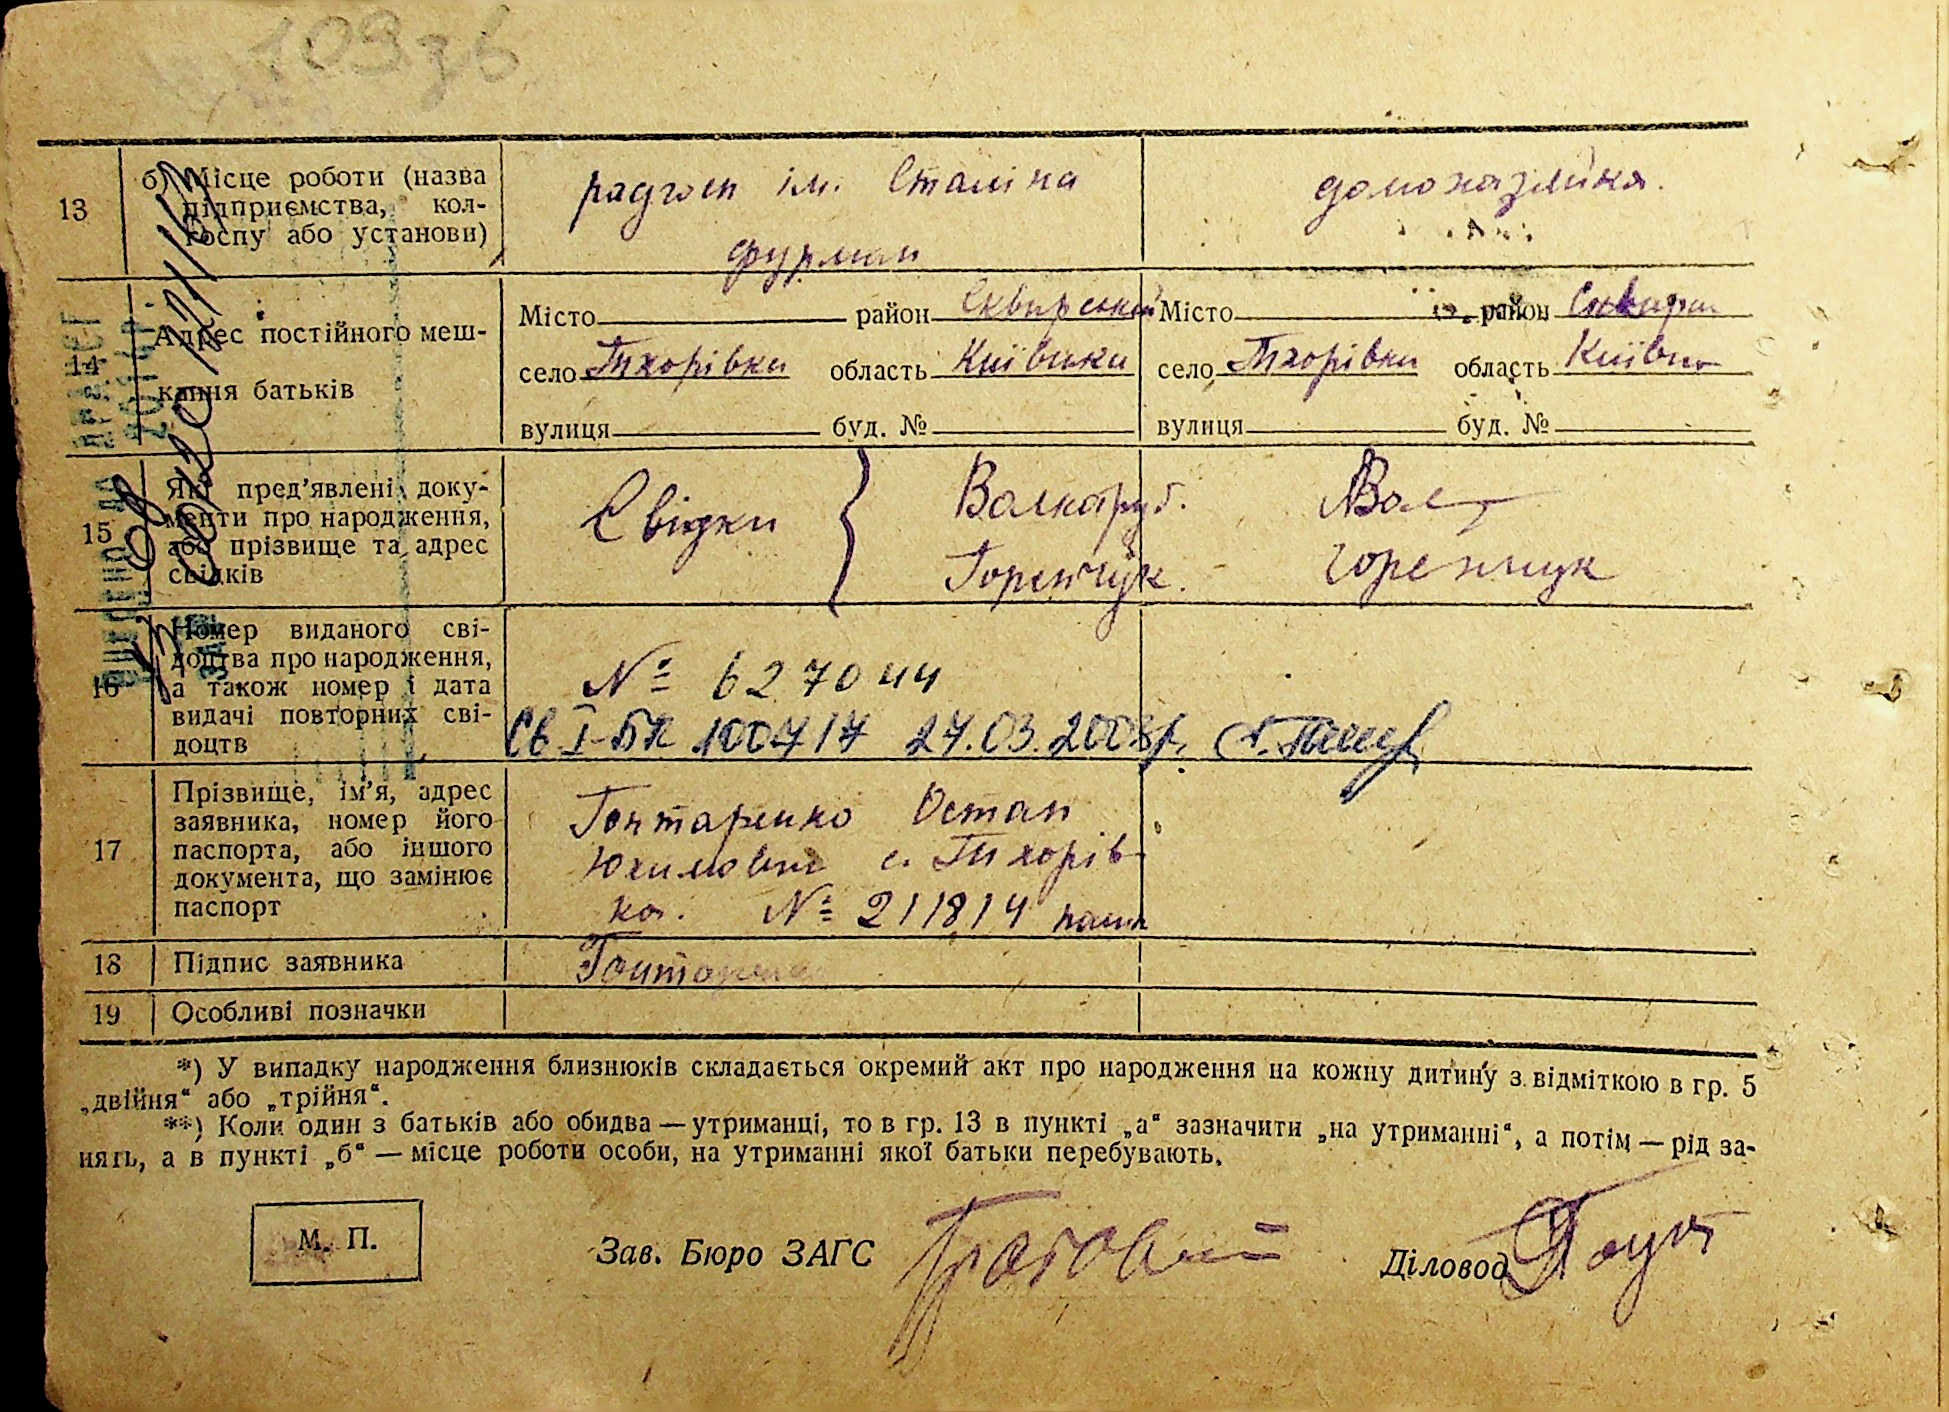 109зб
13
б) Місце роботи (назва
підприємства, кол-
госпу або установи)
радгосп ім. Сталіна
фурман
домохазяйка.
14
Адрес постійного меш-
кання батьків
Місто район Сквирський
село Тхорівка область Київська
вулиця буд. №
Місто район Сквирськ
село Тхорівка область Київськ
вулиця буд. №
15
Які пред'явлені доку-
менти про народження,
або прізвище та адрес
свідків
Свідки
Горенчук.
Горенчук
16
Номер виданого сві-
доцтва про народження,
а також номер і дата
видачі повторних сві-
доцтв
№ 627044
Св І-БК 100717 27.03.2008р.
17
Прізвище, ім'я, адрес
заявника, номер його
паспорта, або іншого
документа, що замінює
паспорт
Гонтаренко Остап
Юхимович с. Тхорів-
ка. № 211814 пасп
18
Підпис заявника
Гонтаренко
19
Особливі позначки
*) У випадку народження близнюків складається окремий акт про народження на кожну дитину з відміткою в гр. 5
„двійня“ або „трійня“.
**) Коли один з батьків або обидва — утриманці, то в гр. 13 в пункті „а“ зазначити „на утриманні“, а потім — рід за-
нять, а в пункті „б“ — місце роботи особи, на утриманні якої батьки перебувають.
М. П.
Зав. Бюро ЗАГС
Діловод